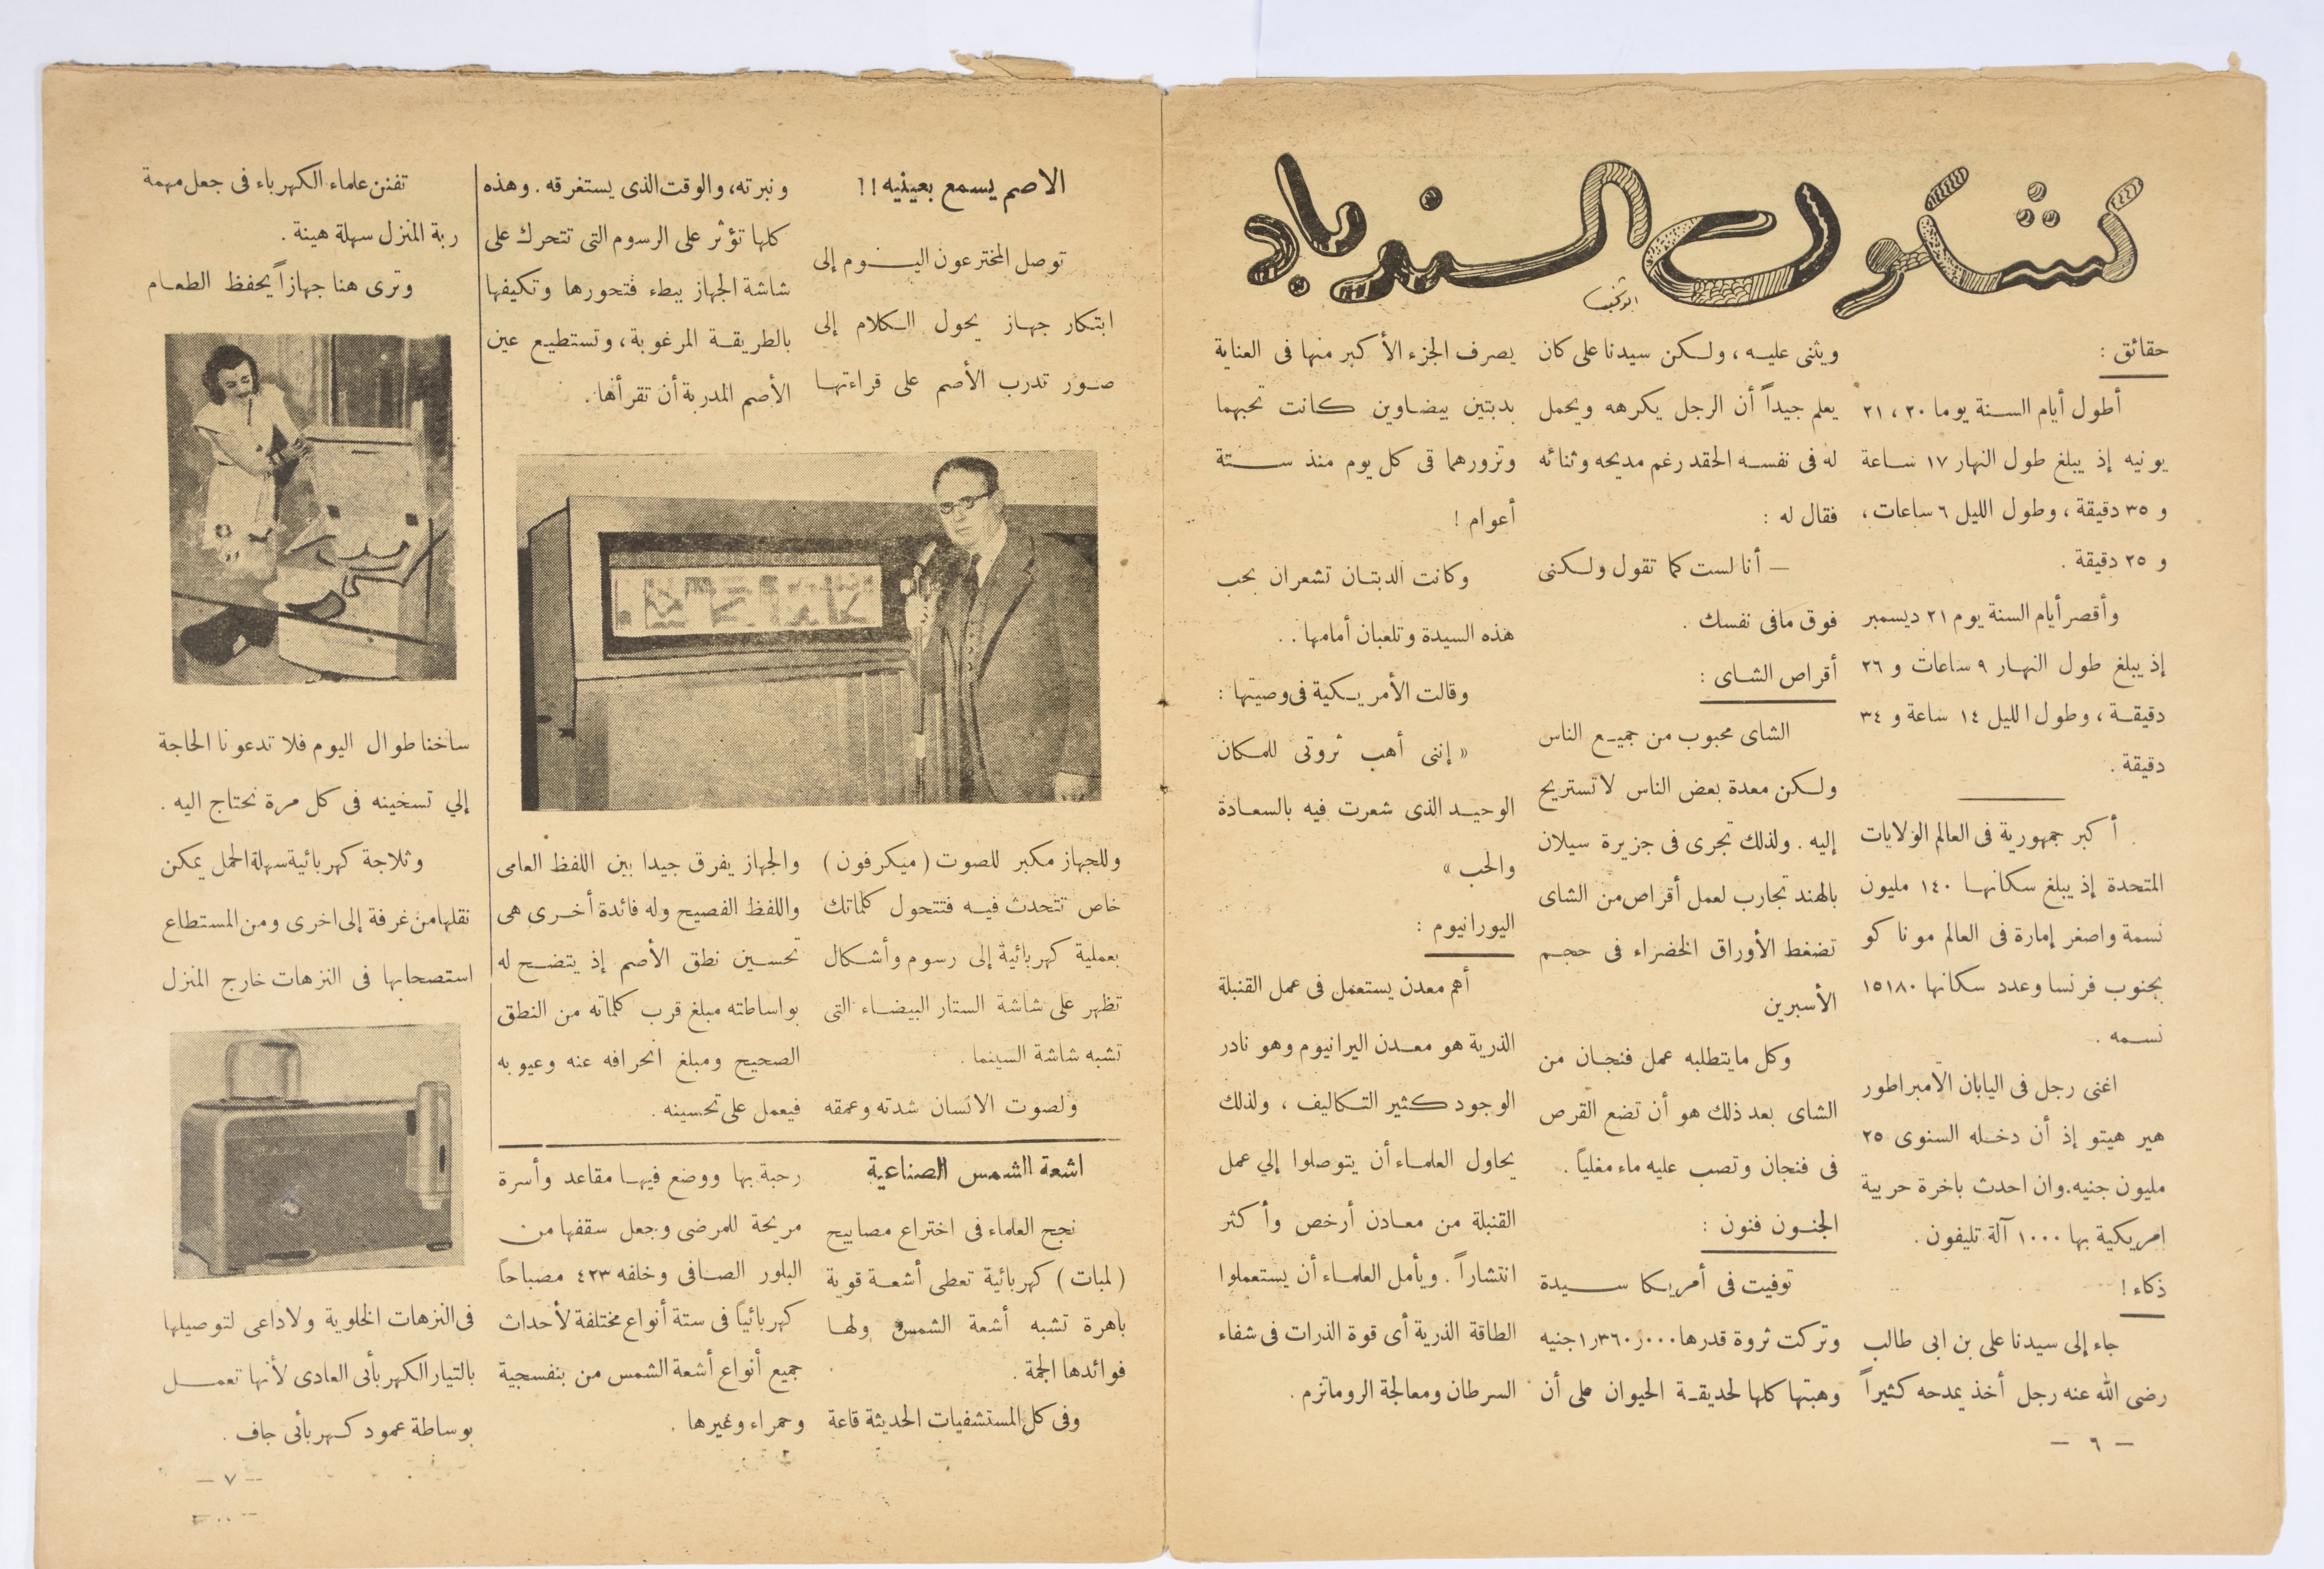 شئون السندباد
حقائق :
أطول أيام السنة يوما ٢٠ ، ٢١
يونيه إذ يبلغ طول النهار ١٧ ساعة
و ٣٥ دقيقة ، وطول الليل ٦ ساعات ،
و ٢٥ دقيقة .
وأقصر أيام السنة يوم ٢١ ديسمبر
إذ يبلغ طول النهار ٩ ساعات و ٢٦
دقيقة ، وطول الليل ١٤ ساعة و ٣٤
دقيقة .
أكبر جمهورية فى العالم الولايات
المتحدة إذ يبلغ سكانها ١٤٠ مليون
نسمة واصغر إمارة فى العالم موناكو
بجنوب فرنسا وعدد سكانها ١٥١٨٠
نسمه .
اغنى رجل فى اليابان الامبراطور
هير هيتو إذ أن دخله السنوى ٢٥
مليون جنيه.وان احدث باخرة حربية
امريكية بها ١٠٠٠ آلة تليفون .
ذكاء !
جاء إلى سيدنا على بن ابى طالب
رضى الله عنه رجل أخذ يمدحه كثيراً
ويثنى عليه ، ولكن سيدنا على كان
يعلم جيداً أن الرجل يكرهه ويحمل
له فى نفسه الحقد رغم مديحه وثنائه
فقال له :
— أنا لست كما تقول ولكنى
فوق مافى نفسك .
أقراص الشاى :
الشاى محبوب من جميع الناس
ولكن معدة بعض الناس لا تستريح
إليه . ولذلك تجرى فى جزيرة سيلان
بالهند تجارب لعمل أقراص من الشاى
تضغط الأوراق الخضراء فى حجم
الأسبرين
وكل مايتطلبه عمل فنجان من
الشاى بعد ذلك هو أن تضع القرص
فى فنجان وتصب عليه ماء مغلياً .
الجنون فنون :
توفيت فى أمريكا سيدة
وتركت ثروة قدرها ١٫٣٦٠٫٠٠٠جنيه
وهبتها كلها لحديقة الحيوان على أن
يصرف الجزء الأكبر منها فى العناية
بدبتين بيضاوين كانت تحبهما
وتزورهما فى كل يوم منذ ستة
أعوام !
وكانت الدبتان تشعران بحب
هذه السيدة وتلعبان أمامها . .
وقالت الأمريكية فى وصيتها :
« إننى أهب ثروتى للمكان
الوحيد الذى شعرت فيه بالسعادة
والحب »
اليورانيوم :
أهم معدن يستعمل فى عمل القنبلة
الذرية هو معدن اليرانيوم وهو نادر
الوجود كثير التكاليف ، ولذلك
يحاول العلماء أن يتوصلوا إلي عمل
القنبلة من معادن أرخص وأكثر
انتشاراً . ويأمل العلماء أن يستعملوا
الطاقة الذرية أى قوة الذرات فى شفاء
السرطان ومعالجة الروماتزم .
— ٦ —
الاصم يسمع بعينيه !!
توصل المخترعون اليوم إلى
ابتكار جهاز يحول الكلام إلى
صور تدرب الأصم على قراءتها
وللجهاز مكبر للصوت ( ميكرفون )
خاص تتحدث فيه فتتحول كلماتك
بعملية كهربائية إلى رسوم وأشكال
تظهر على شاشة الستار البيضاء التى
تشبه شاشة السينما .
ولصوت الانسان شدته وعمقه
ونبرته، والوقت الذى يستغرقه . وهذه
كلها تؤثر على الرسوم التى تتحرك على
شاشة الجهاز ببطء فتحورها وتكيفها
بالطريقة المرغوبة ، وتستطيع عين
الأصم المدربة أن تقرأها .
والجهاز يفرق جيدا بين اللفظ العامى
واللفظ الفصيح وله فائدة أخرى هى
تحسين نطق الأصم إذ يتضح له
بواساطته مبلغ قرب كلماته من النطق
الصحيح ومبلغ انحرافه عنه وعيوبه
فيعمل على تحسينه .
اشعة الشمس الصناعية
نجح العلماء فى اختراع مصابيح
( لمبات ) كهربائية تعطى أشعة قوية
باهرة تشبه أشعة الشمس ولها
فوائدها الجمة .
وفى كل المستشفيات الحديثة قاعة
رحبة بها ووضع فيها مقاعد وأسرة
مريحة للمرضى وجعل سقفها من
البلور الصافى وخلفه ٤٢٣ مصباحاً
كهربائياً فى ستة أنواع مختلفة لأحداث
جميع أنواع أشعة الشمس من بنفسجية
وحمراء وغيرها .
تفنن علماء الكهرباء فى جعل مهمة
ربة المنزل سهلة هينة .
وترى هنا جهازاً يحفظ الطعام
ساخنا طوال اليوم فلا تدعونا الحاجة
إلي تسخينه فى كل مرة نحتاج اليه .
وثلاجة كهربائية سهلة الحمل يمكن
نقلها من غرفة إلى اخرى ومن المستطاع
استصحابها فى النزهات خارج المنزل
فى النزهات الخلوية ولاداعى لتوصيلها
بالتيار الكهربأئى العادى لأنها تعمل
بوساطة عمود كهربأئى جاف .
— ٧ —